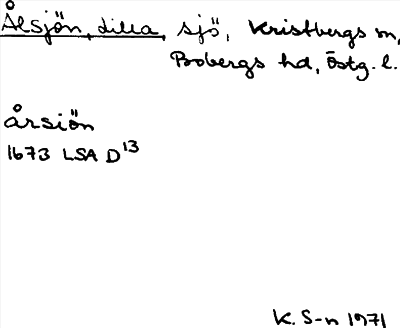 Ålsjön, Lilla, sjö, Kristbergs sn,
Bobergs hd, Östg. l.
årsiön
1673 LSA D¹³
K. S-n 1971